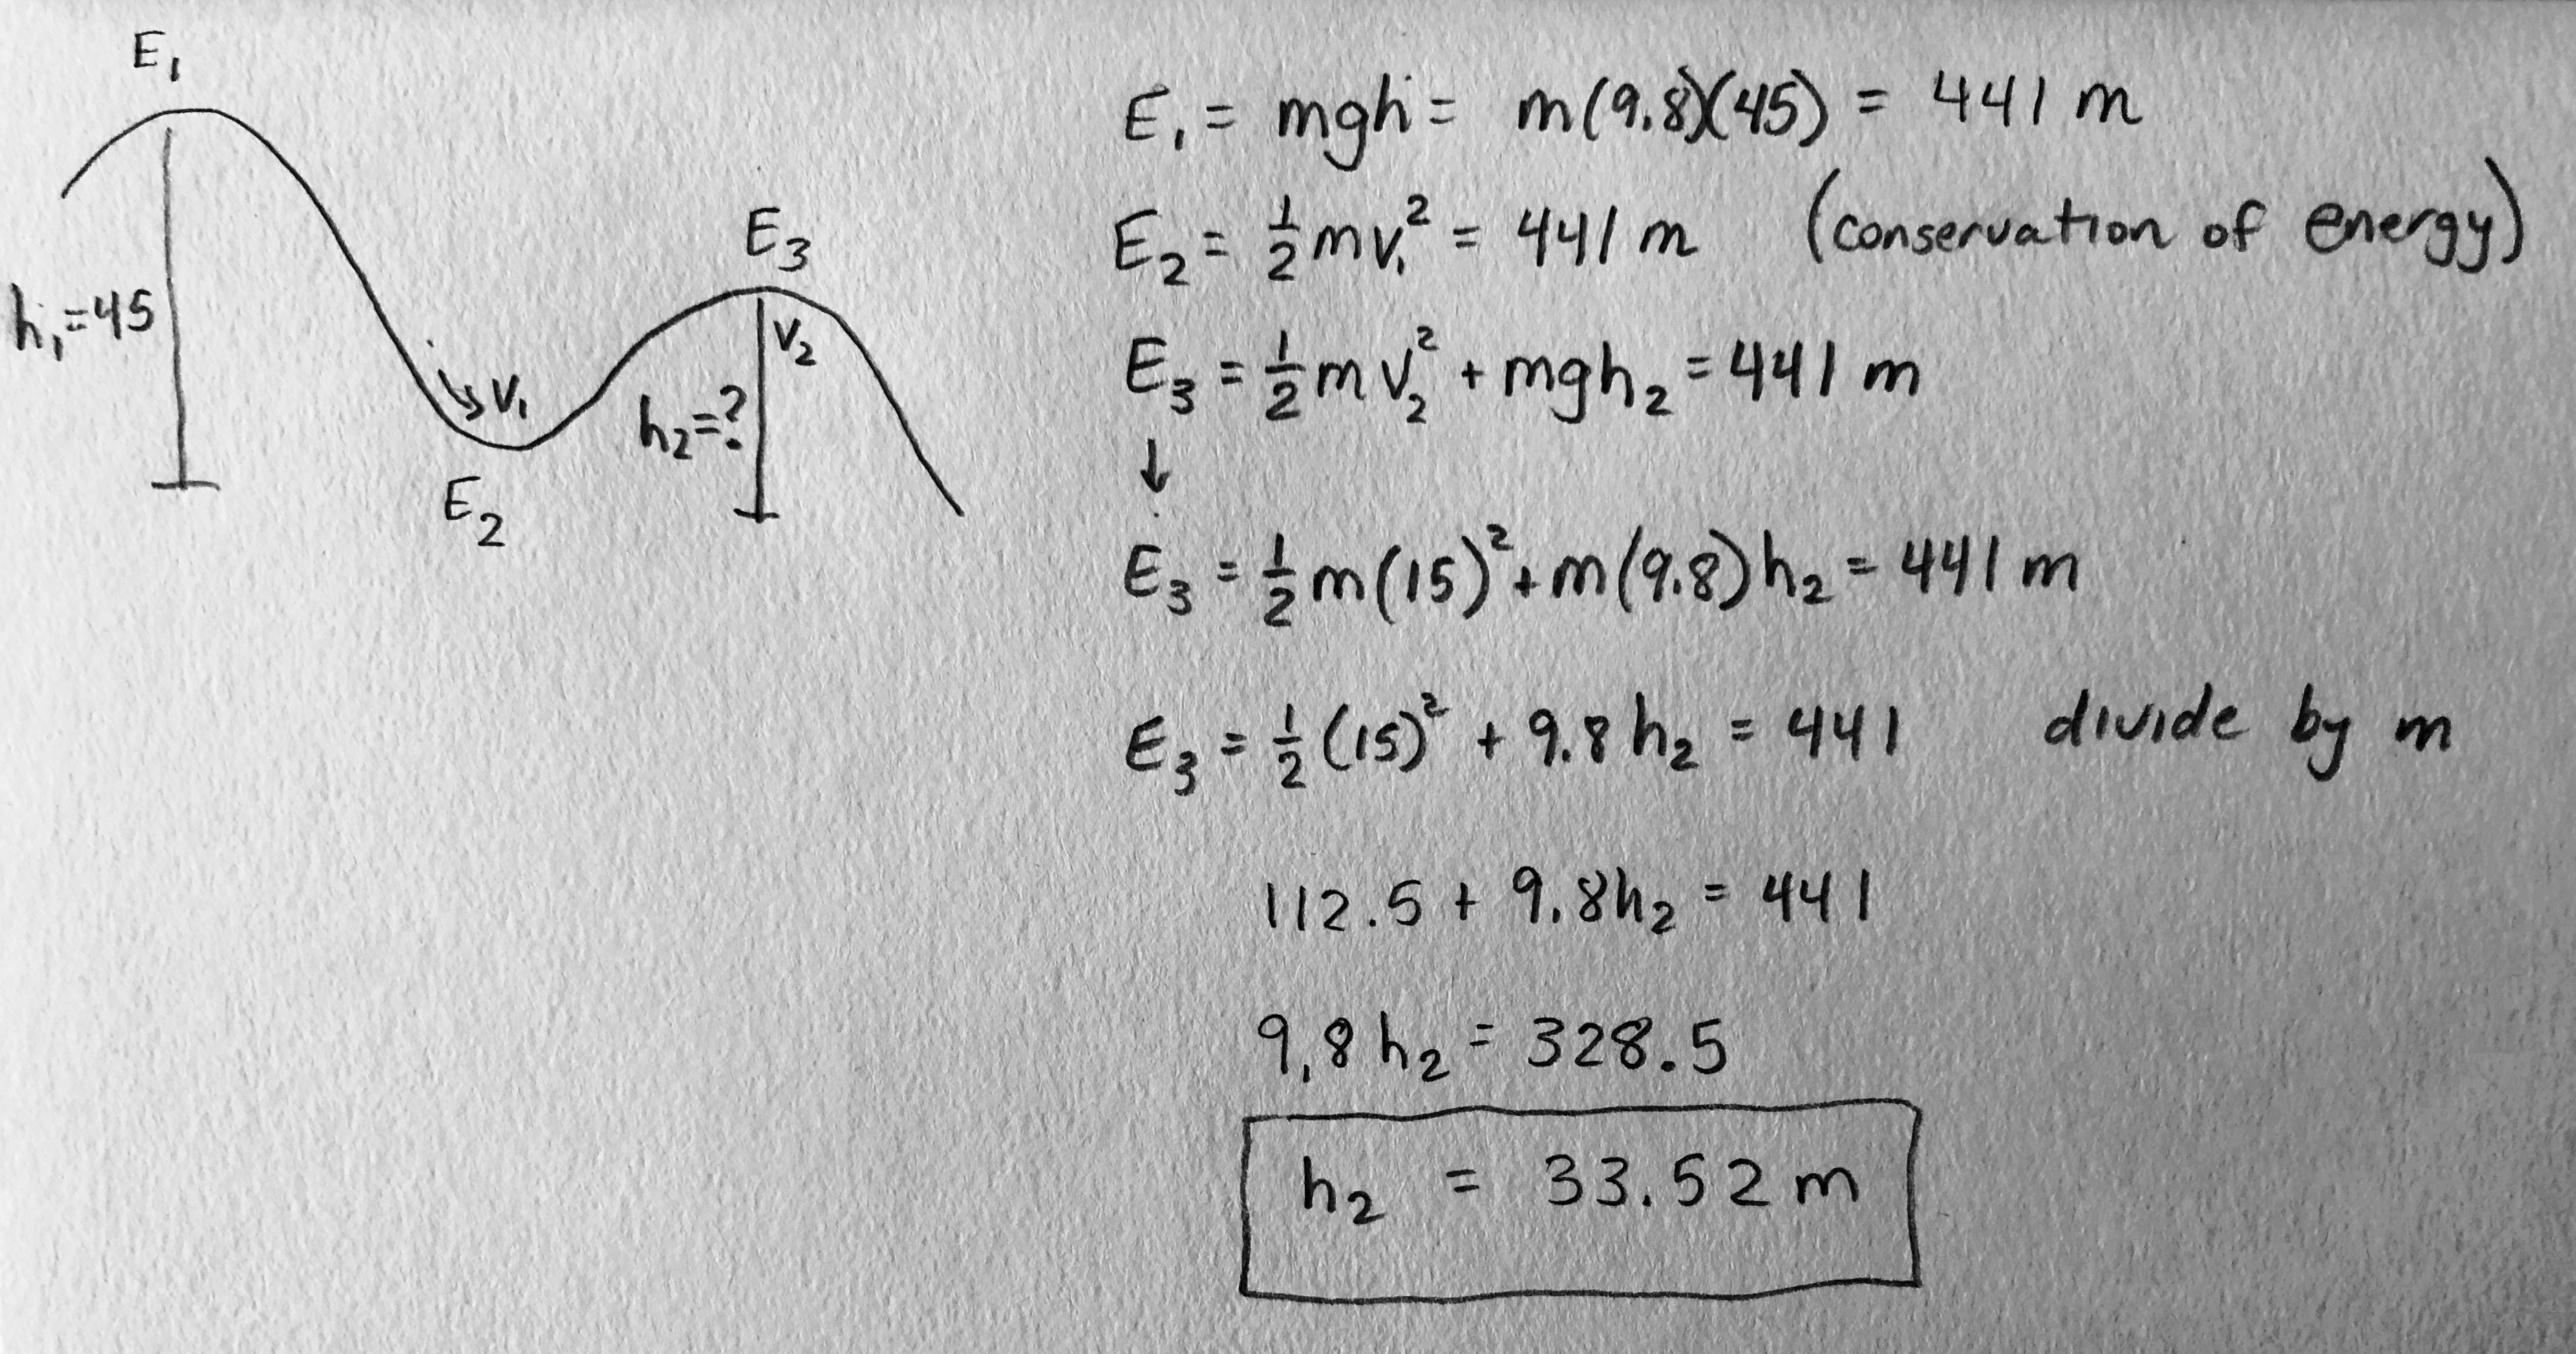 E₁
h₁=45
v₁
E₂
E₃
v₂
h₂=?
E₁ = mgh = m(9.8)(45) = 441 m
E₂ = ½ mv₁² = 441 m (conservation of energy)
E₃ = ½ m v₂² + mgh₂ = 441 m
↓
E₃ = ½ m(15)² + m(9.8)h₂ = 441 m
E₃ = ½ (15)² + 9.8 h₂ = 441 divide by m
112.5 + 9.8h₂ = 441
9.8 h₂ = 328.5
h₂ = 33.52 m